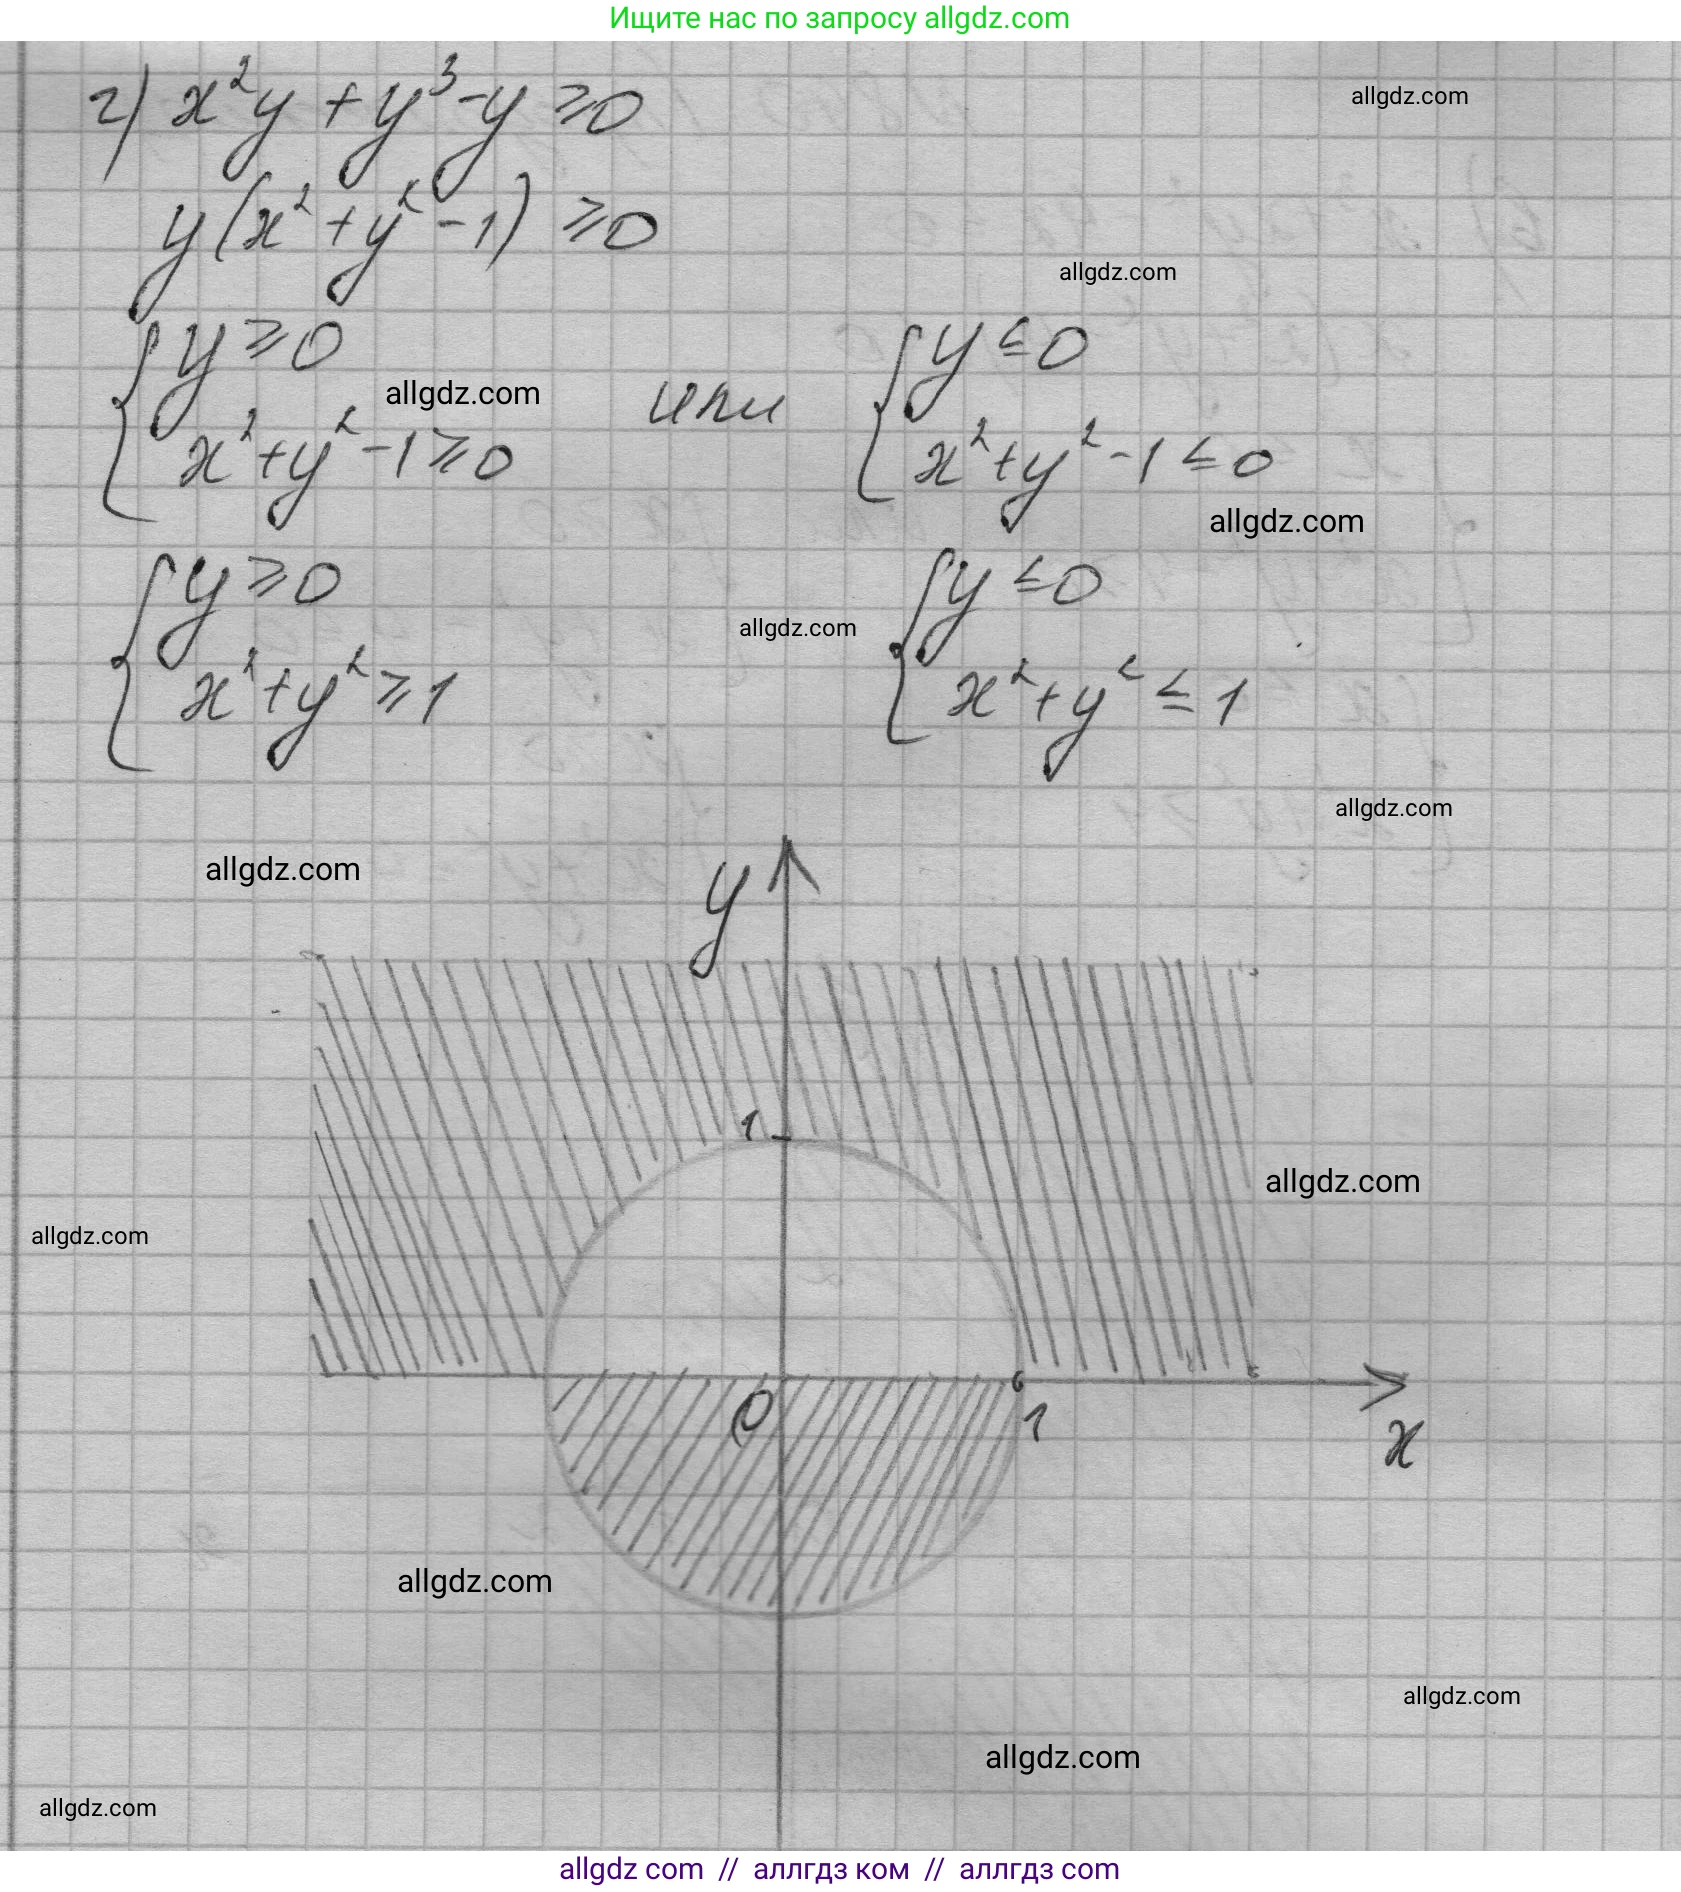 Ищите нас по запросу allgdz.com
г) x²y + y³ - y ≥ 0
allgdz.com
y(x² + y² - 1) ≥ 0
allgdz.com
{ y ≥ 0 { y ≤ 0
allgdz.com или
x² + y² - 1 ≥ 0 x² + y² - 1 ≤ 0
allgdz.com
{ y ≥ 0 { y ≤ 0
allgdz.com
x² + y² ≥ 1 x² + y² ≤ 1
allgdz.com
allgdz.com
y
1
allgdz.com
allgdz.com
0 1
x
allgdz.com
allgdz.com
allgdz.com
allgdz.com
allgdz com // аллгдз ком // аллгдз com